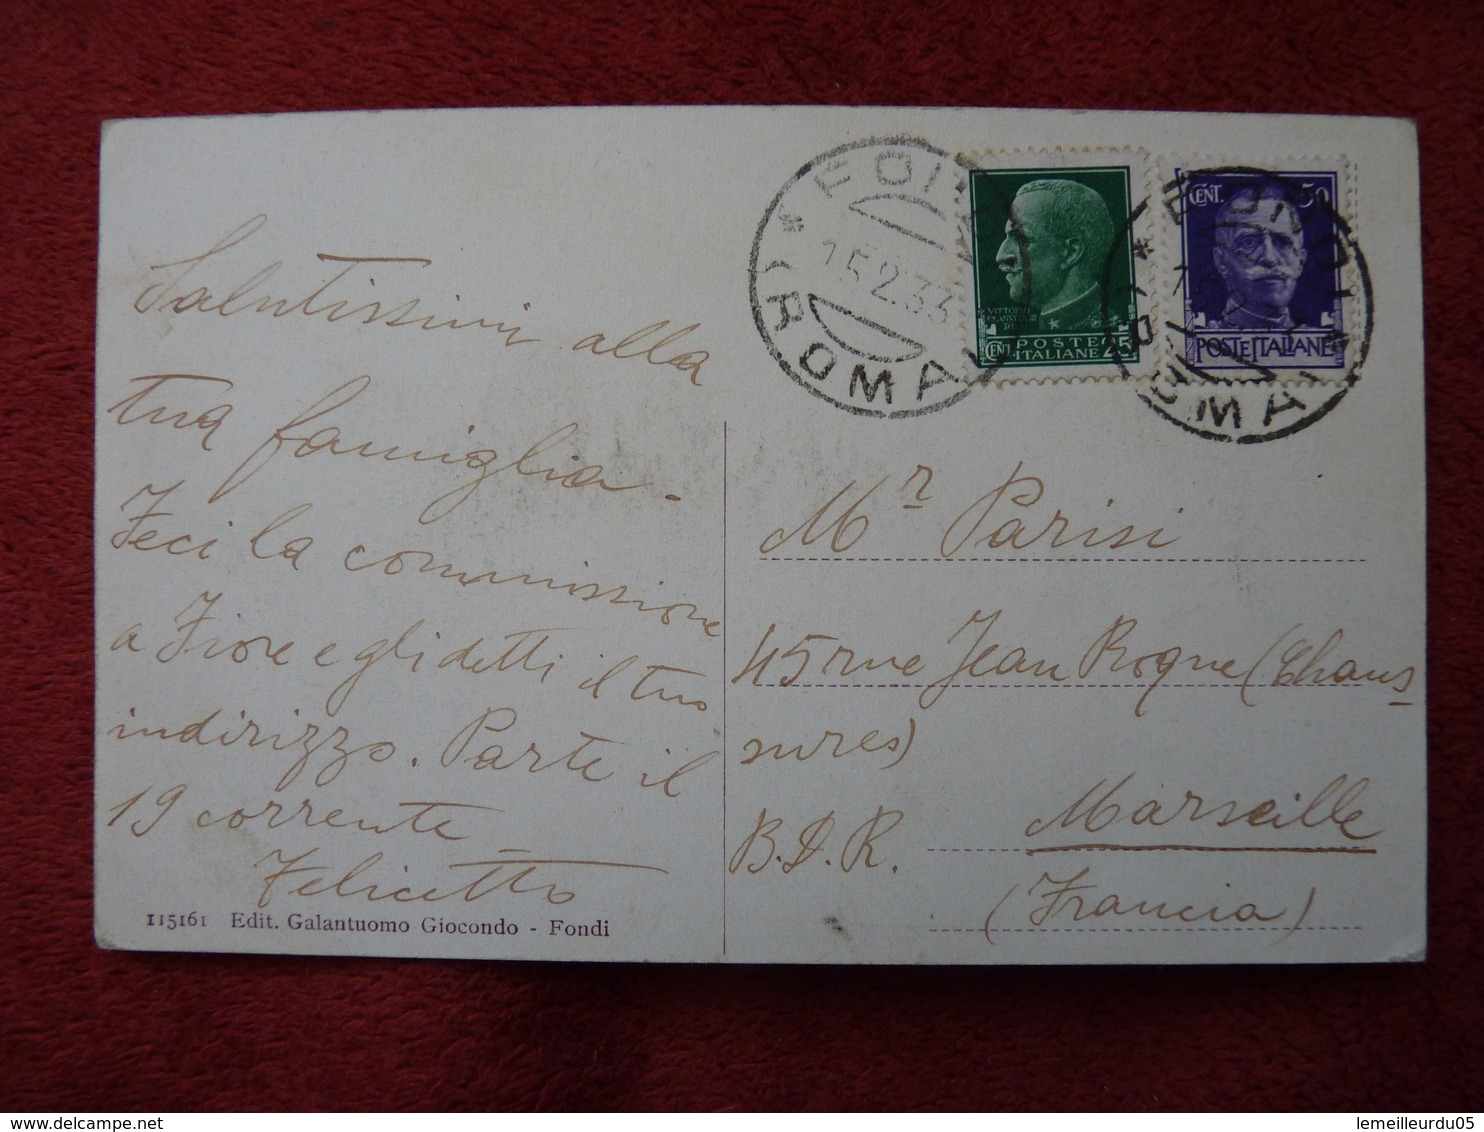 Salutissimi alla
tua famiglia -
Feci la commissione
a Fiore e gli detti il tuo
indirizzo. Parte il
19 corrente
Felicetto
115161 Edit. Galantuomo Giocondo - Fondi
* FONDI * (ROMA)
15.2.33
VITTORIO
EMANUELE III
RE
CENT. POSTE ITALIANE 25
CENT. 50
POSTE ITALIANE
* FONDI * (ROMA)
Mr Parisi
45 rue Jean Roque (Chaus
sures)
B.D.R. Marseille
(Francia)
delcampe.net
lemeilleurdu05